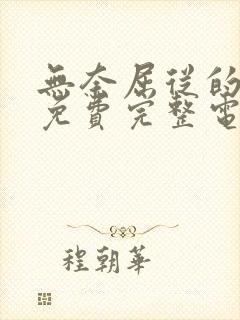 無奈屈從的
免費完整電
程朝華